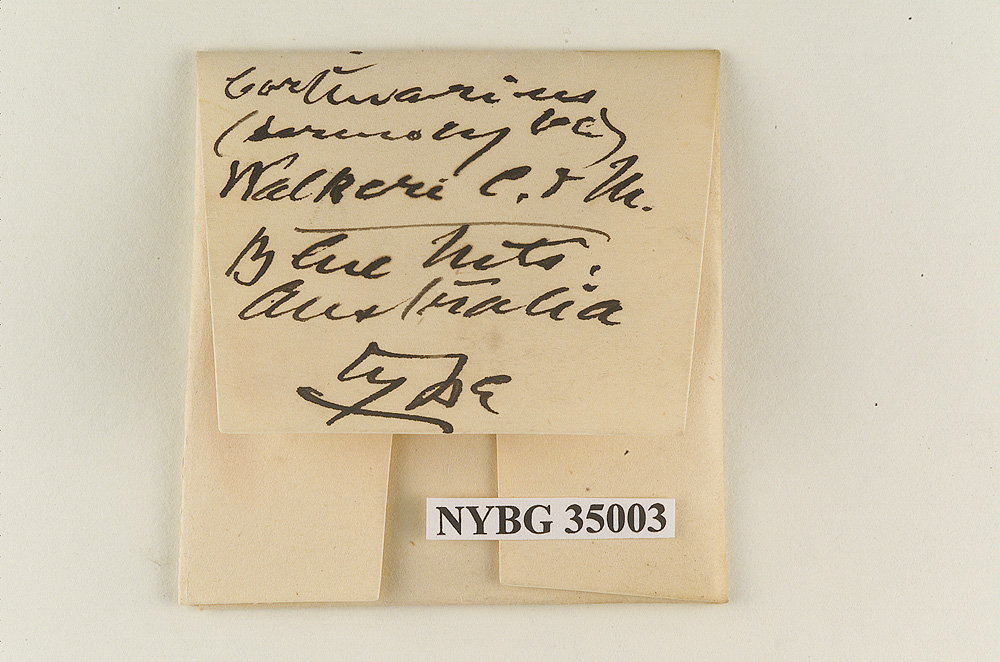 Cortinarius
(Dermocybe)
Walkeri C. & M.
Blue Mts.
Australia
Type
NYBG 35003